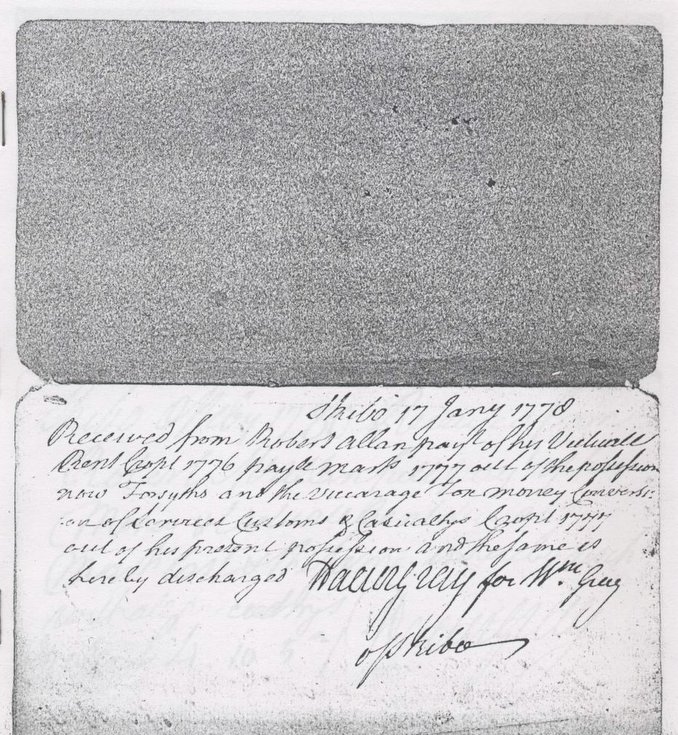 Skibo 17 Jany 1778
Received from Robert Allan payt of his Victuall
Rent Cropt 1776 payle mart 1777 out of the possession
now Forsyths and the Viccarage for money Conversi:
on of Services Customs & Casualtys Cropt 1777
out of his present possession and the same is
hereby discharged Gray for Wm. Gray
of Skibo